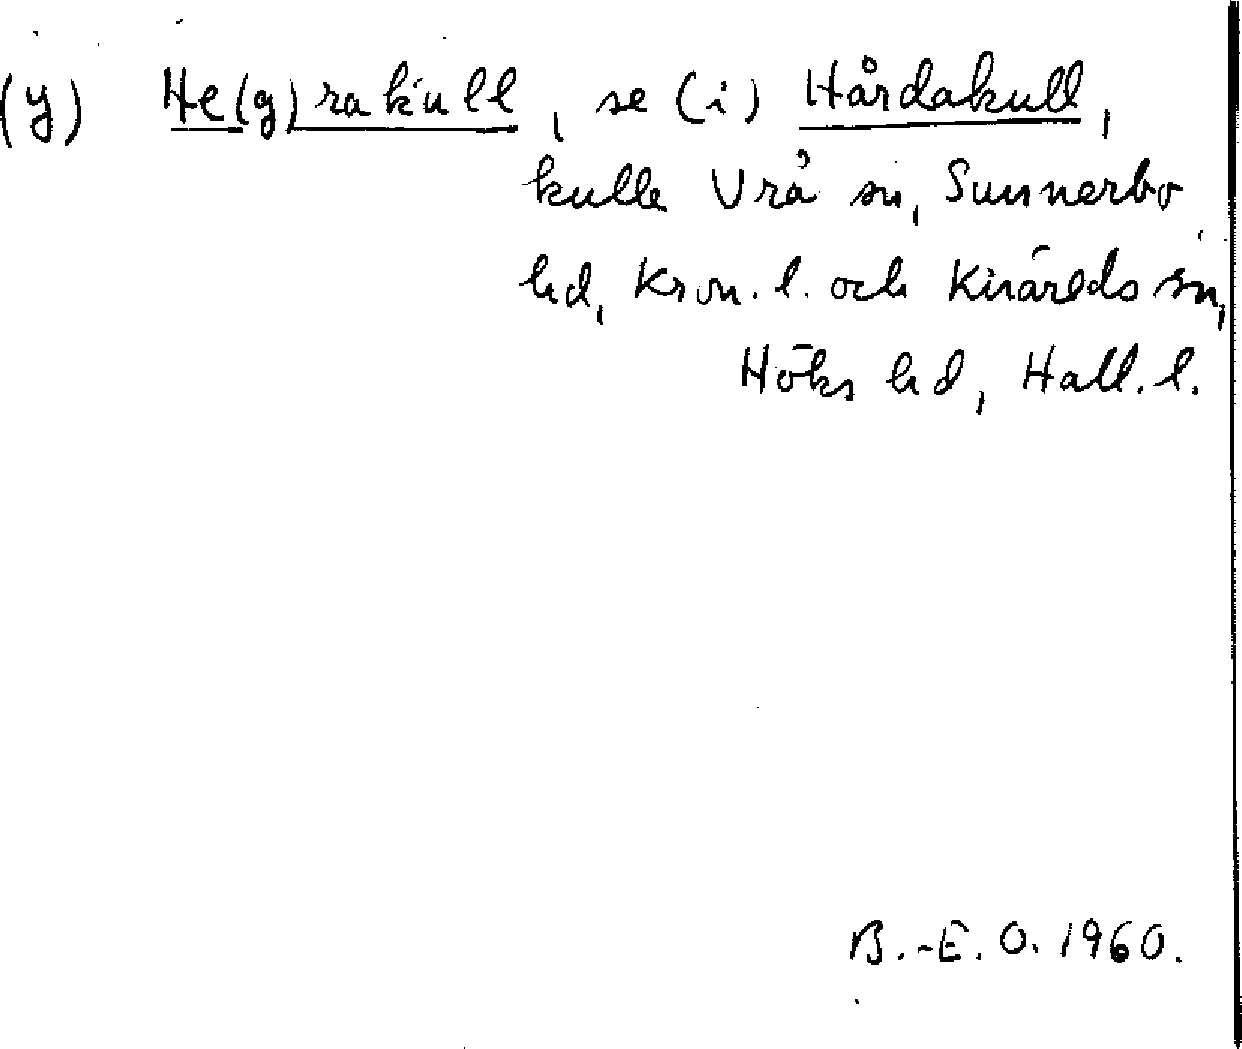 (y) He(g)rakull, se (i) Hårdakull,
kulle Vrå sn, Sunnerbo
hd, Kron. l. och Knäreds sn,
Höks hd, Hall. l.
B.-E. O. 1960.